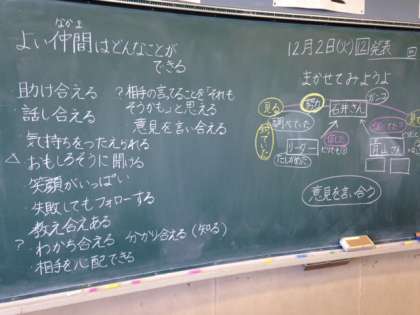 なかま
よい仲間はどんなことが
できる
助け合える
話し合える
気持ちをつたえられる
△おもしろそうに聞ける
笑顔がいっぱい
失敗してもフォローする
教え合えある
?わかち合える 分かり合える(知る)
相手を心配できる
?相手の言ってることを「それも
そうかも」と思える
意見を言い合える
12月2日(火)
発表
まかせてみようよ
見る
石井さん
調べてた
リーダー
たしかめた
意見を言い合う